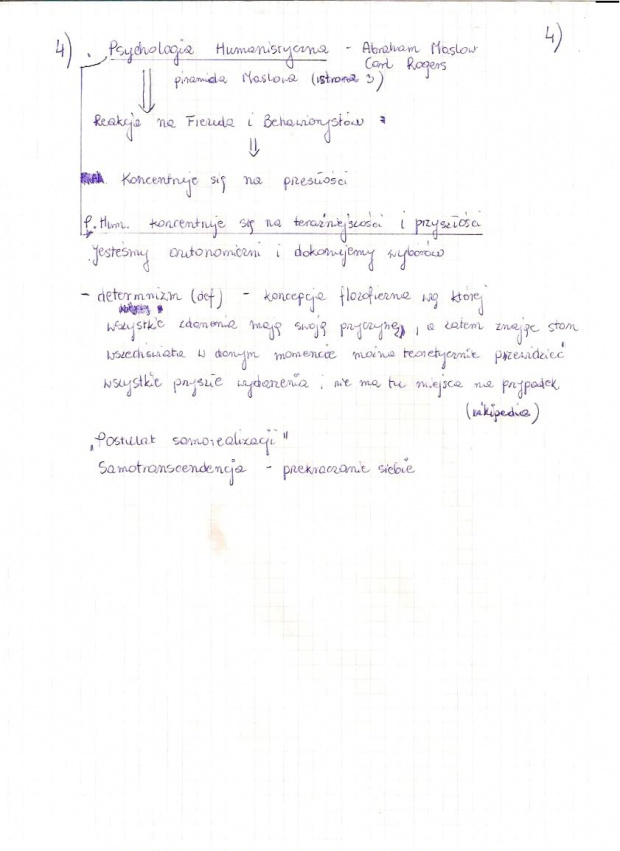 4) . Psychologia Humanistyczna - Abraham Maslow 4)
Carl Rogers
piramida Maslowa (strona 3)
Reakcja na Freuda i Behawiorystów
Koncentruje się na przeszłości
P. Hum. koncentruje się na teraźniejszości i przyszłości
Jesteśmy autonomiczni i dokonujemy wyborów
- determnizm (def) - koncepcja filozoficzna wg której
wszystkie zdarzenia mają swoją przyczynę, a zatem znając stan
wszechświata w danym momencie można teoretycznie przewidzieć
wszystkie przyszłe wydarzenia, nie ma tu miejsca na przypadek
(wikipedia)
"Postulat samorealizacji"
Samotranscendencja - przekraczanie siebie